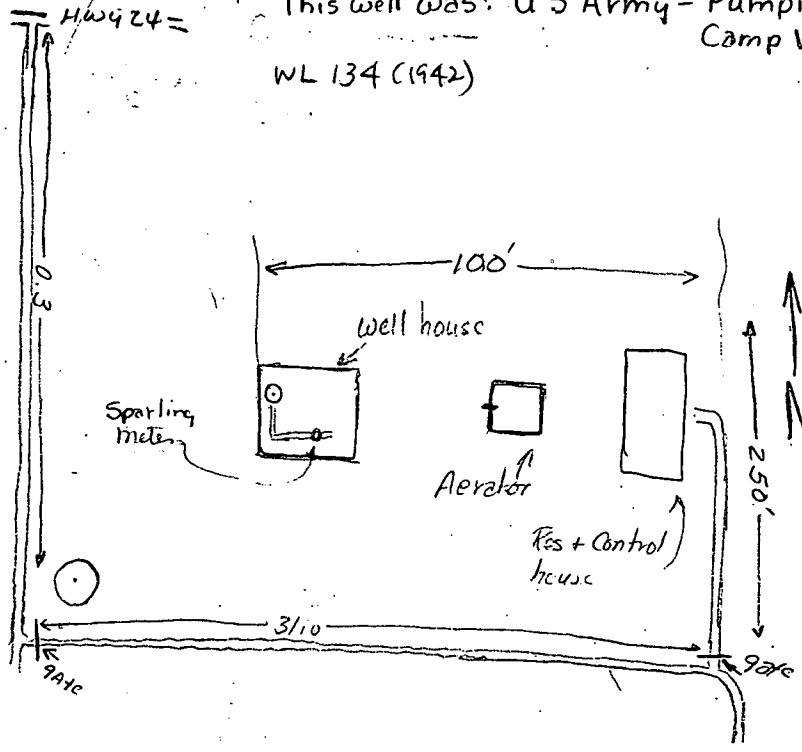 HWY 24
This well was: U S Army - Pump
Camp
WL 134 (1942)
100'
0.3
well house
Sparling
meter
Aerator
250'
Res + Control
house
3/10
gate
gate
N